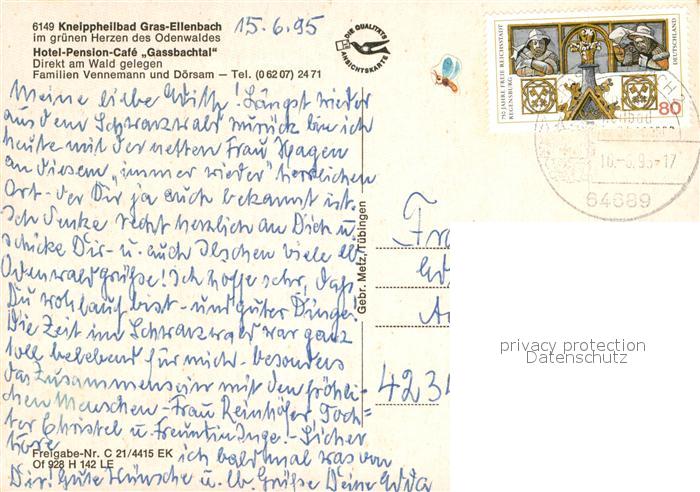 6149 Kneippheilbad Gras-Ellenbach
im grünen Herzen des Odenwaldes
Hotel-Pension-Café „Gassbachtal“
Direkt am Wald gelegen
Familien Vennemann und Dörsam – Tel. (0 62 07) 24 71
15.6.95
DIE QUALITÄTS
ANSICHTSKARTE
750 JAHRE FREIE REICHSSTADT
REGENSBURG
DEUTSCHLAND
80
16.-6.95-17
64689
Meine liebe ! Längst wieder
aus dem Schwarzwald zurück bin ich
heute mit der netten Frau Hagen
an diesem „immer wieder" herrlichen
Ort - der Dir ja auch bekannt ist.
Ich denke recht herzlich an Dich u.
schicke Dir - u. auch Ilschen viele lb.
Odenwaldgrüße! Ich hoffe sehr, daß
Du wohlauf bist - und guter Dinge!
Die Zeit im Schwarzwald war ganz
toll belebend für mich - besonders
das Zusammensein mit den fröhli-
chen Menschen - Frau Reinhöfer, Toch=
ter Christel u. Freundin Inge. - Sicher
höre ich bald mal was von
Dir! Gute Wünsche u. lb. Grüße Deine
Gebr. Metz, Tübingen
Fr
423
privacy protection
Datenschutz
Freigabe-Nr. C 21/4415 EK
Of 928 H 142 LE